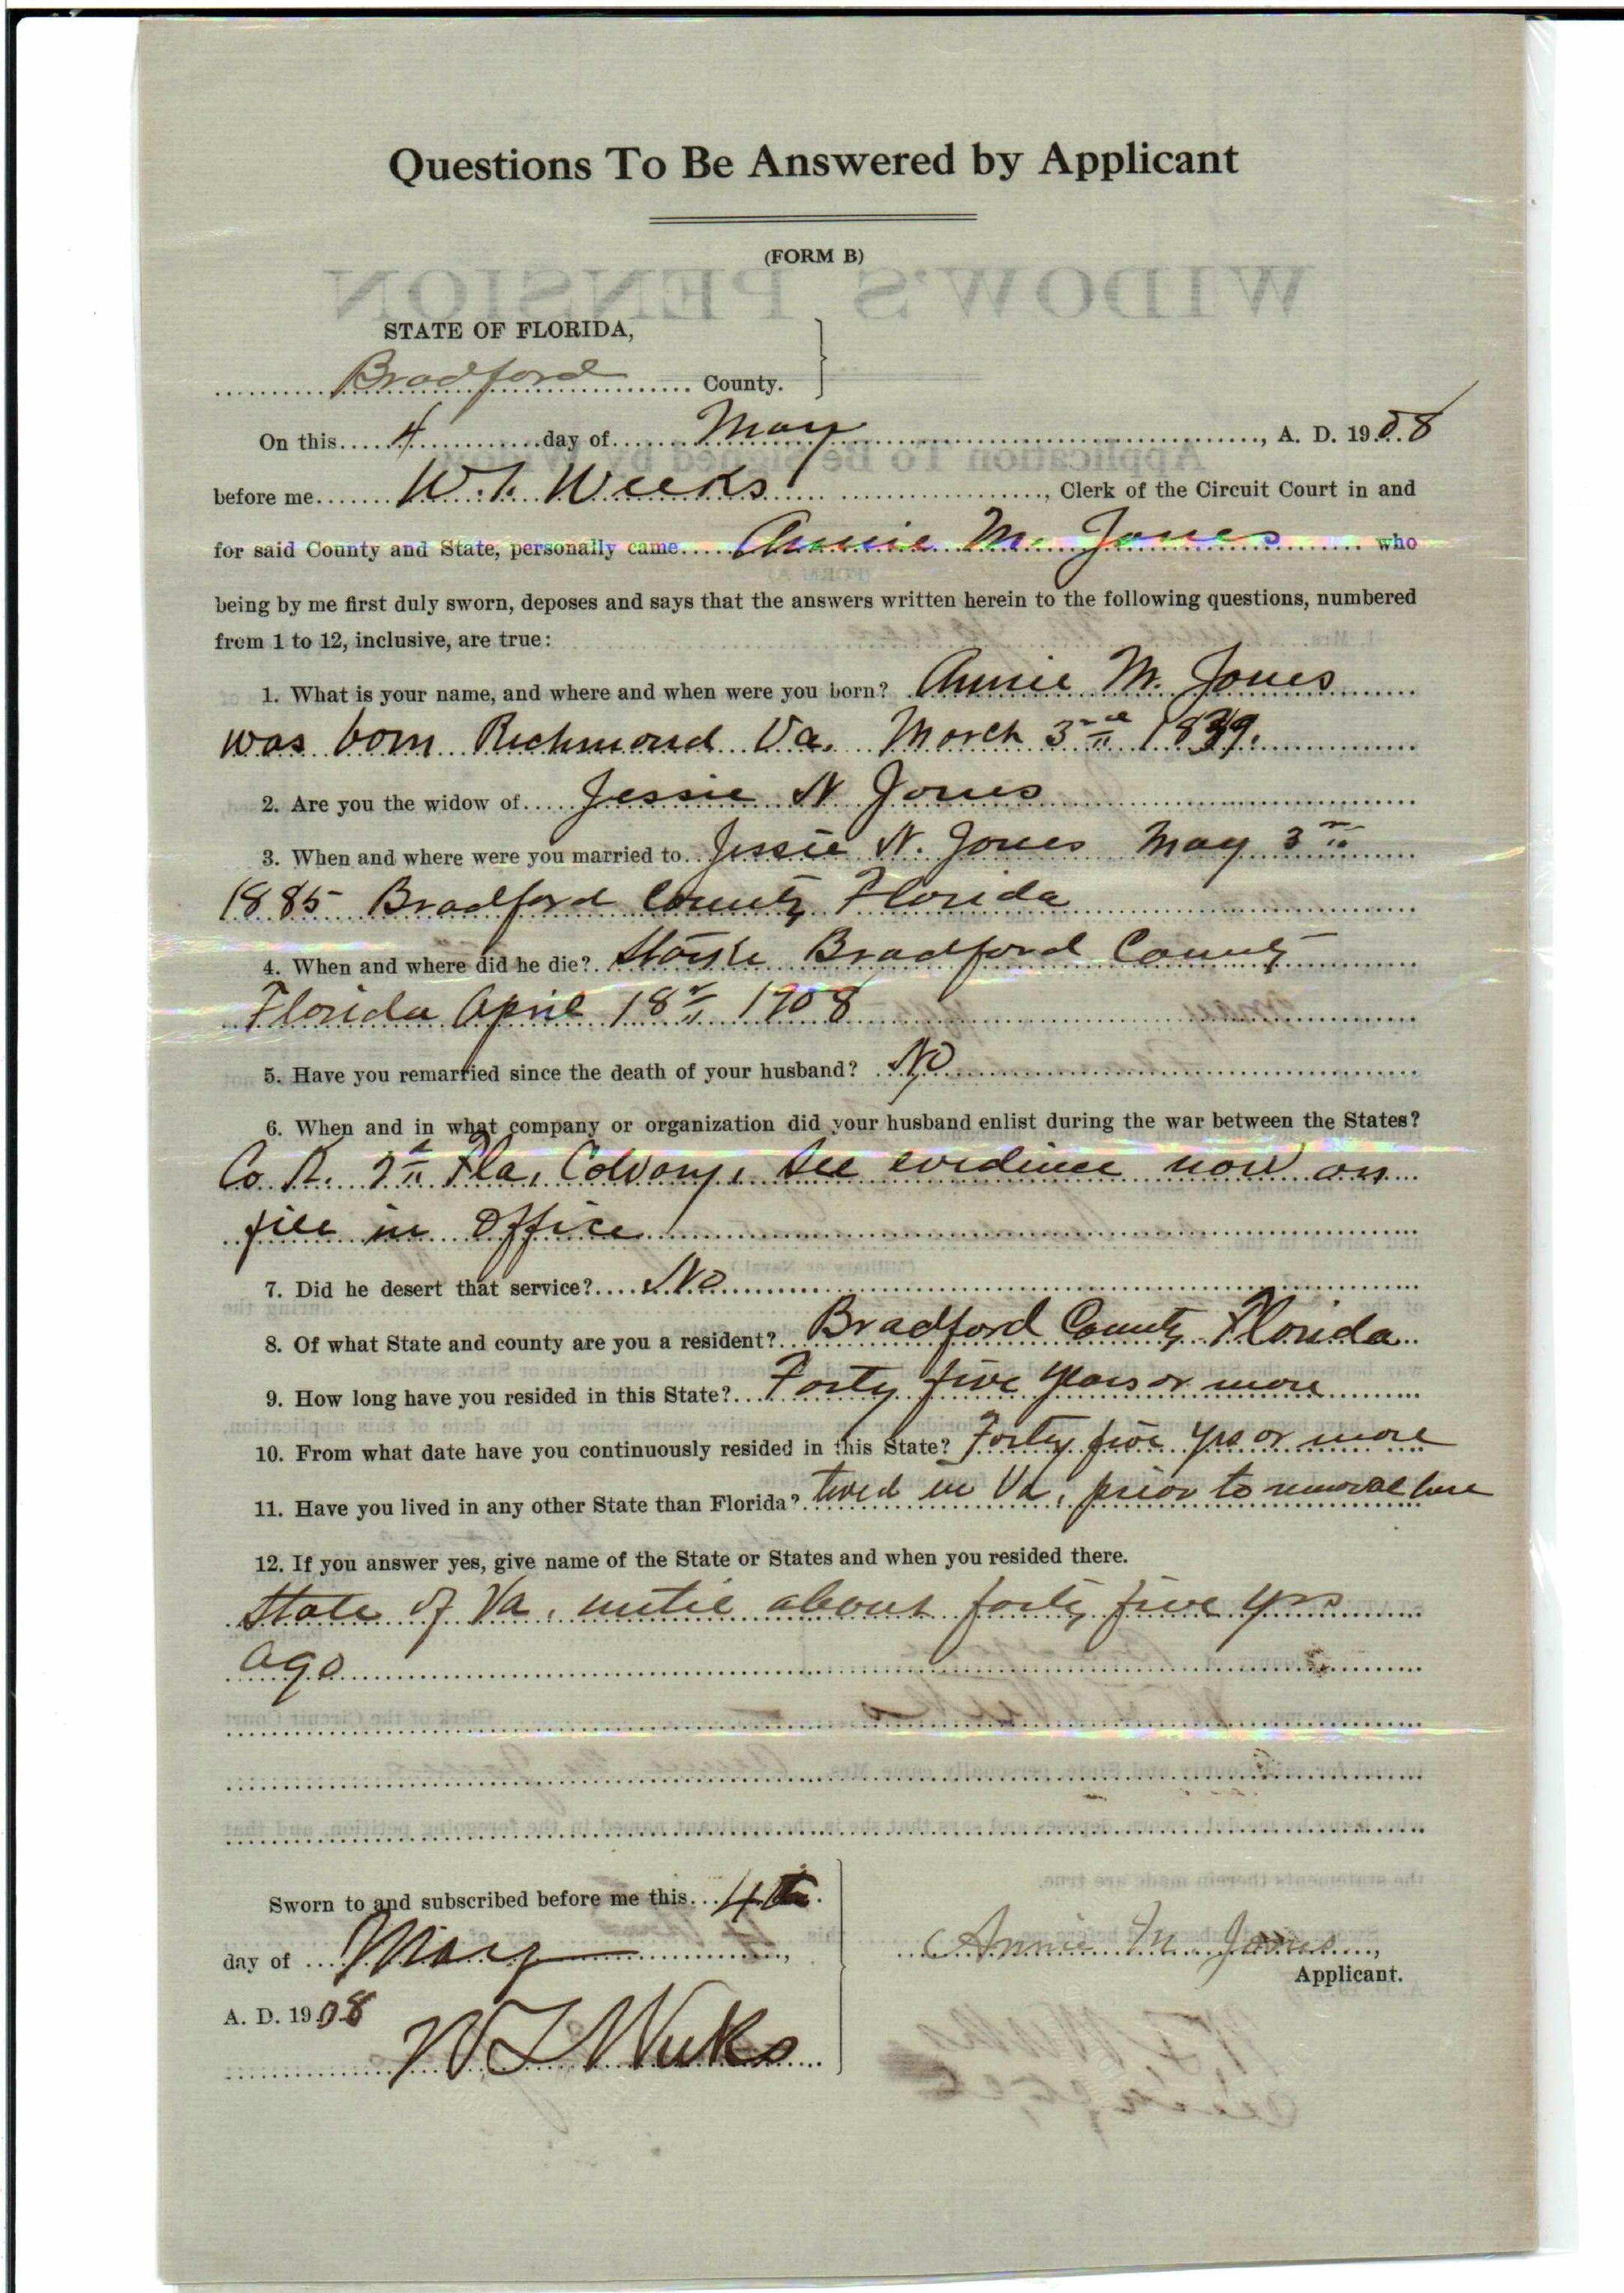 Questions To Be Answered by Applicant
(FORM B)
WIDOW'S PENSION
STATE OF FLORIDA,
Bradford County.
On this 4 day of May, A. D. 1908
before me W. T. Weeks, Clerk of the Circuit Court in and
for said County and State, personally came Annie M. Jones who
being by me first duly sworn, deposes and says that the answers written herein to the following questions, numbered
from 1 to 12, inclusive, are true:
1. What is your name, and where and when were you born? Annie M. Jones
was born Richmond Va. March 3rd
2. Are you the widow of Jessie N Jones
3. When and where were you married to Jessie N. Jones May 3
1885 Bradford County Florida
4. When and where did he die? Starke Bradford County
Florida April 18 1908
5. Have you remarried since the death of your husband? No
6. When and in what company or organization did your husband enlist during the war between the States?
Co Fla. Calvary. See evidence now on
file in office
7. Did he desert that service? No
8. Of what State and county are you a resident? Bradford County Florida
9. How long have you resided in this State? Forty five years or more
10. From what date have you continuously resided in this State? Forty five yrs or more
11. Have you lived in any other State than Florida? lived in Va, prior to removal here
12. If you answer yes, give name of the State or States and when you resided there.
State of Va, until about forty five yrs
ago
Sworn to and subscribed before me this 4th
day of May,
A. D. 1908
W T Weeks
Annie M. Jones,
Applicant.